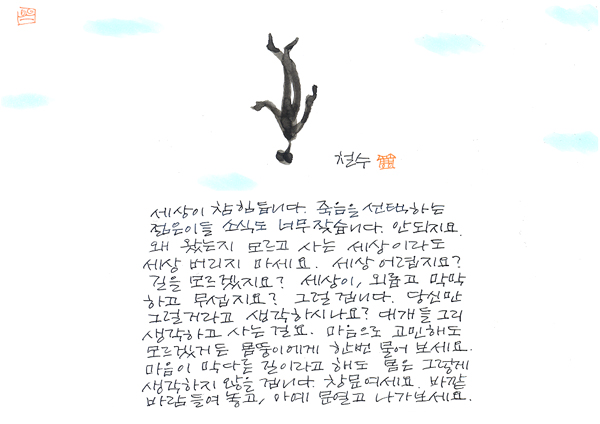 철수
세상이 참 힘듭니다. 죽음을 선택하는
젊은이들 소식도 너무 잦습니다. 안되지요.
왜 왔는지 모르고 사는 세상이라도
세상 버리지 마세요. 세상 어렵지요?
길을 모르겠지요? 세상이, 외롭고 막막
하고 무섭지요? 그럴겁니다. 당신만
그럴거라고 생각하시나요? 대개들 그리
생각하고 사는걸요. 마음으로 고민해도
모르겠거든 몸뚱이에게 한번 물어 보세요.
마음이 막다른 길이라고 해도 몸은 그렇게
생각하지 않을겁니다. 창문여세요. 바깥
바람 들여 놓고, 아예 문열고 나가보세요.